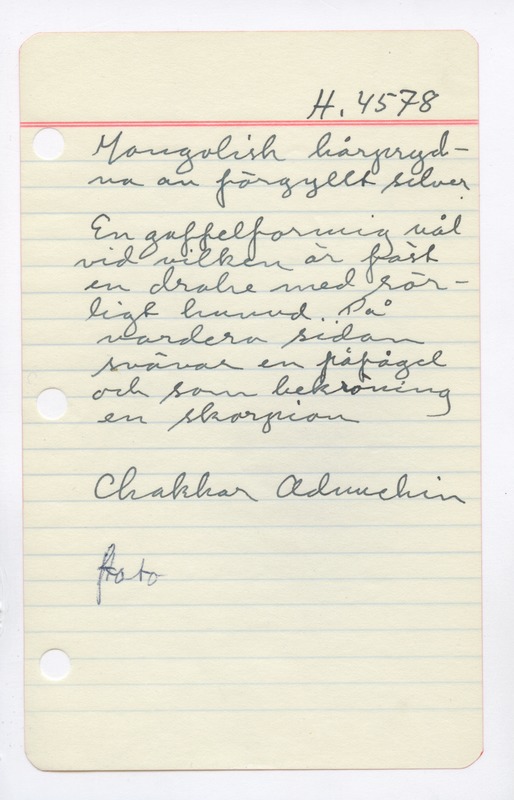 H. 4578
Mongolisk hårpryd-
na av förgyllt silver
En gaffelformig nål
vid vilken är fäst
en drake med rör-
ligt huvud. På
vardera sidan
svävar en påfågel
och som bekröning
en skorpion
Chakhar Aduuchin
foto